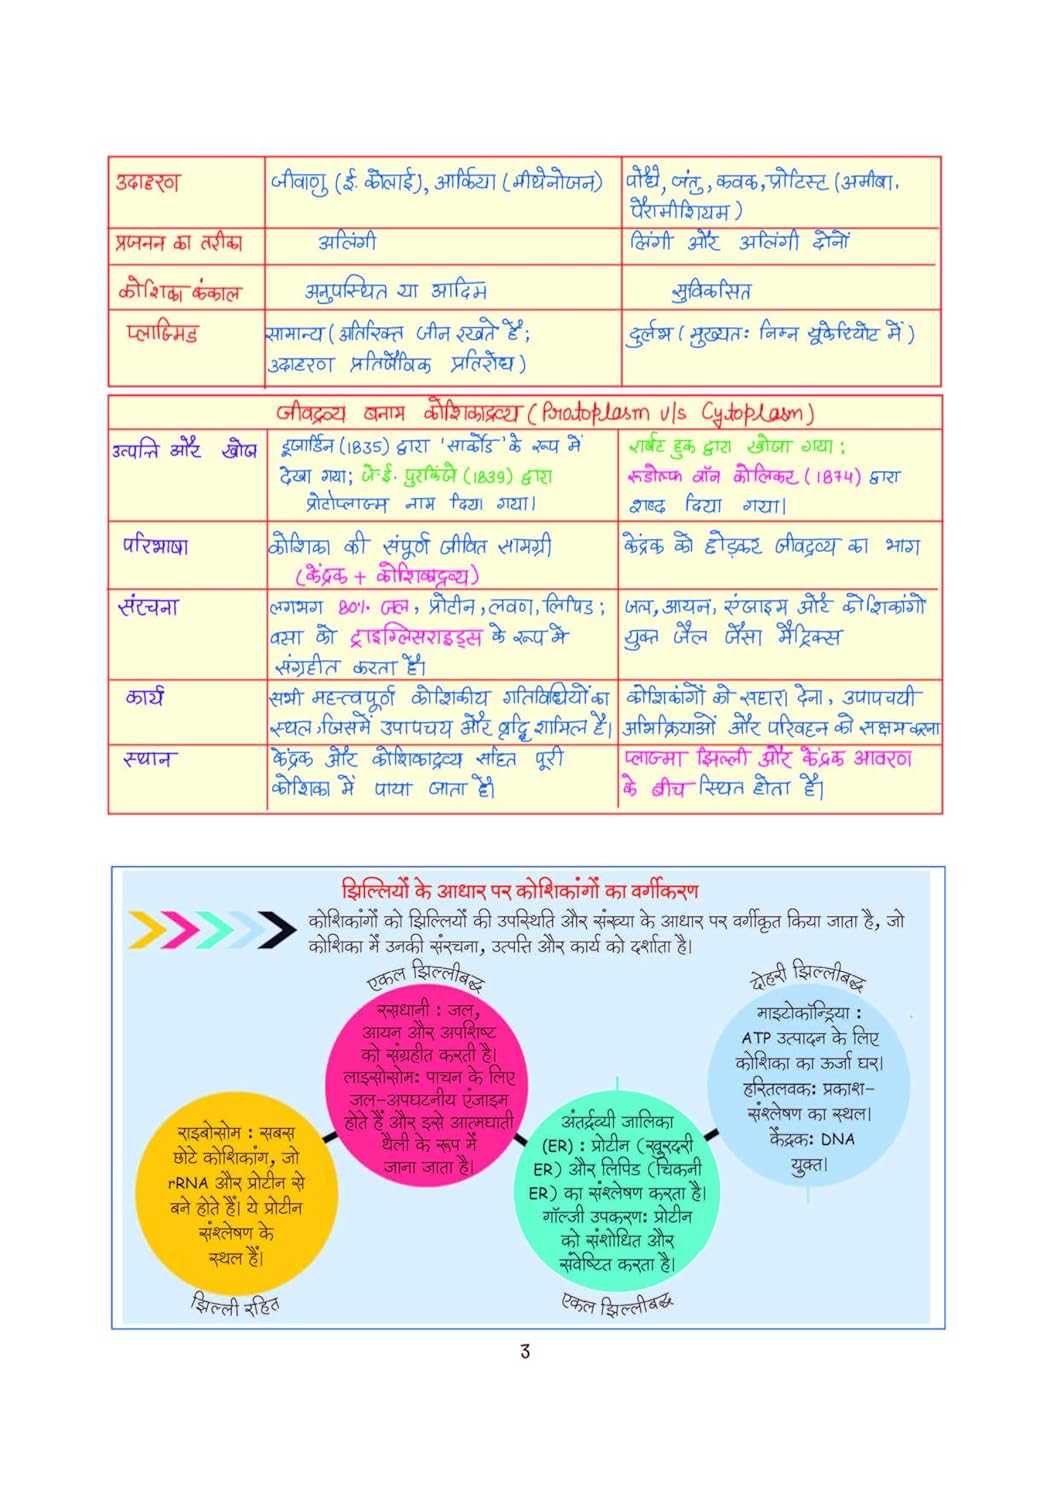 उदाहरण
जीवाणु (ई. कोलाई), आर्किया (मीथेनोजन)
पौधे, जंतु, कवक, प्रोटिस्ट (अमीबा,
पैरामीशियम)
प्रजनन का तरीका
अलिंगी
लिंगी और अलिंगी दोनों
कोशिका कंकाल
अनुपस्थित या आदिम
सुविकसित
प्लाज्मिड
सामान्य (अतिरिक्त जीन रखते हैं;
उदाहरण प्रतिजैविक प्रतिरोध)
दुर्लभ (मुख्यतः निम्न यूकेरियोट में)
जीवद्रव्य बनाम कोशिकाद्रव्य (Protoplasm v/s Cytoplasm)
उत्पत्ति और खोज
डूजार्डिन (1835) द्वारा 'सार्कोड' के रूप में
देखा गया; जे.ई. पुरकिंजे (1839) द्वारा
प्रोटोप्लाज्म नाम दिया गया।
रॉबर्ट हुक द्वारा खोजा गया;
रूडोल्फ वॉन कोलिकर (1874) द्वारा
शब्द दिया गया।
परिभाषा
कोशिका की संपूर्ण जीवित सामग्री
(केंद्रक + कोशिकाद्रव्य)
केंद्रक को छोड़कर जीवद्रव्य का भाग
संरचना
लगभग 80% जल, प्रोटीन, लवण, लिपिड;
वसा को ट्राइग्लिसराइड्स के रूप में
संग्रहीत करता है।
जल, आयन, एंजाइम और कोशिकांगो
युक्त जैल जैसा मैट्रिक्स
कार्य
सभी महत्त्वपूर्ण कोशिकीय गतिविधियों का
स्थल, जिसमें उपापचय और वृद्धि शामिल है।
कोशिकांगों को सहारा देना, उपापचयी
अभिक्रियाओं और परिवहन को सक्षम करना
स्थान
केंद्रक और कोशिकाद्रव्य सहित पूरी
कोशिका में पाया जाता है।
प्लाज्मा झिल्ली और केंद्रक आवरण
के बीच स्थित होता है।
झिल्लियों के आधार पर कोशिकांगों का वर्गीकरण
कोशिकांगों को झिल्लियों की उपस्थिति और संख्या के आधार पर वर्गीकृत किया जाता है, जो
कोशिका में उनकी संरचना, उत्पत्ति और कार्य को दर्शाता है।
राइबोसोम : सबस
छोटे कोशिकांग, जो
rRNA और प्रोटीन से
बने होते हैं। ये प्रोटीन
संश्लेषण के
स्थल हैं।
झिल्ली रहित
एकल झिल्लीबद्ध
रसधानी : जल,
आयन और अपशिष्ट
को संग्रहीत करती है।
लाइसोसोम: पाचन के लिए
जल-अपघटनीय एंजाइम
होते हैं और इसे आत्मघाती
थैली के रूप में
जाना जाता है।
अंतर्द्रव्यी जालिका
(ER) : प्रोटीन (खुरदरी
ER) और लिपिड (चिकनी
ER) का संश्लेषण करता है।
गॉल्जी उपकरण: प्रोटीन
को संशोधित और
संवेष्टित करता है।
एकल झिल्लीबद्ध
दोहरी झिल्लीबद्ध
माइटोकॉन्ड्रिया :
ATP उत्पादन के लिए
कोशिका का ऊर्जा घर।
हरितलवक: प्रकाश-
संश्लेषण का स्थल।
केंद्रक: DNA
युक्त।
3